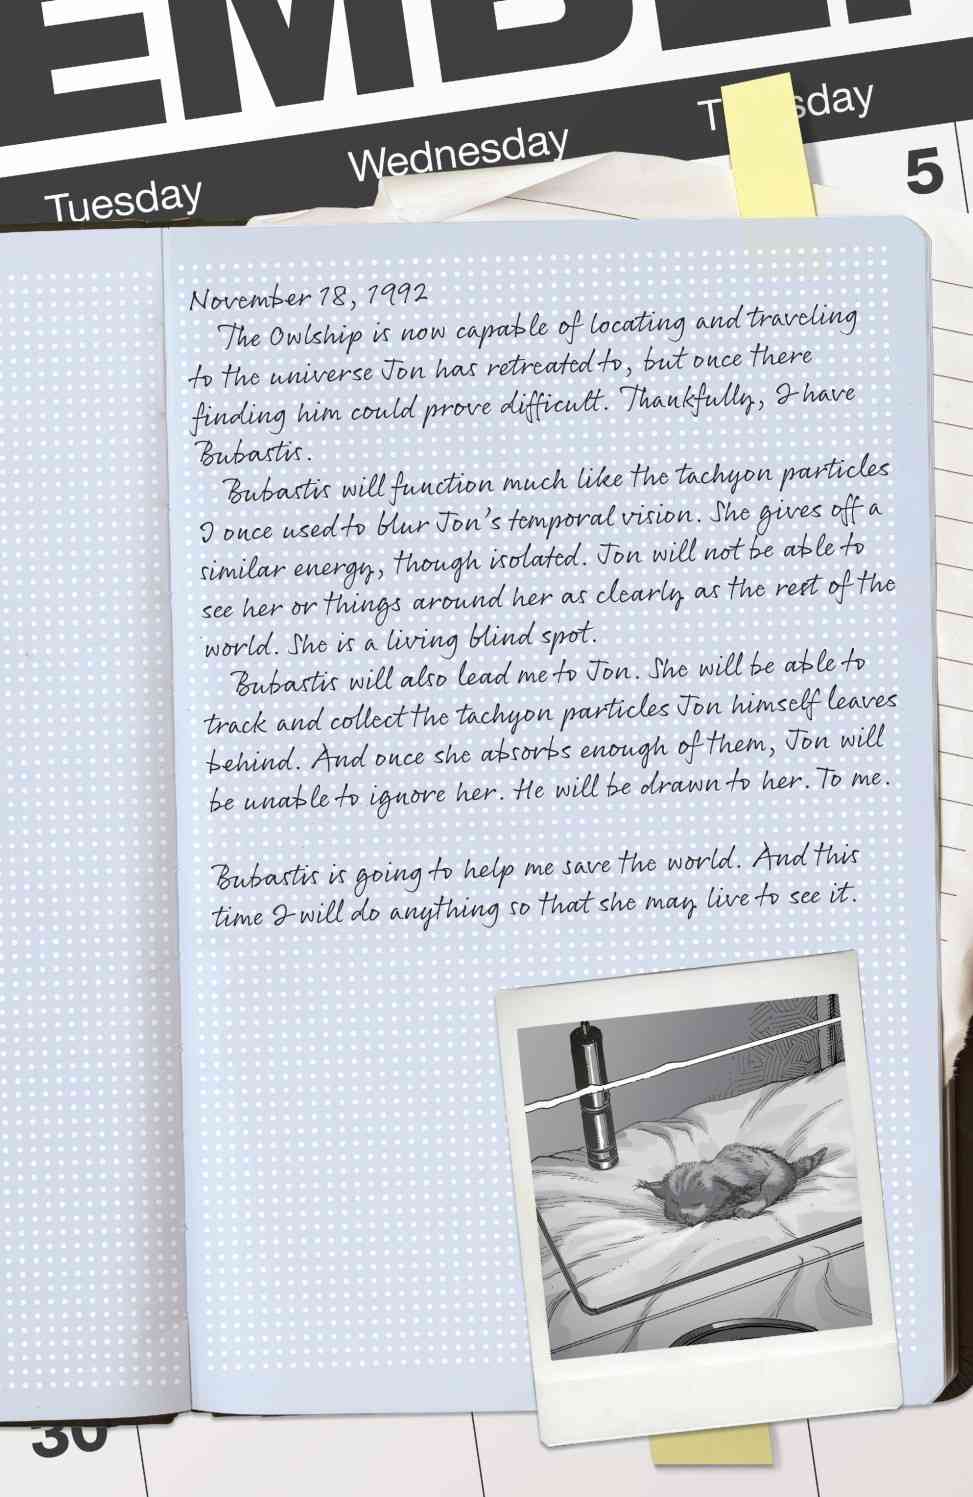 EMBE
Tuesday
Wednesday
T sday
5
November 18, 1992
The Owlship is now capable of locating and traveling
to the universe Jon has retreated to, but once there
finding him could prove difficult. Thankfully, I have
Bubastis.
Bubastis will function much like the tachyon particles
I once used to blur Jon's temporal vision. She gives off a
similar energy, though isolated. Jon will not be able to
see her or things around her as clearly as the rest of the
world. She is a living blind spot.
Bubastis will also lead me to Jon. She will be able to
track and collect the tachyon particles Jon himself leaves
behind. And once she absorbs enough of them, Jon will
be unable to ignore her. He will be drawn to her. To me.
Bubastis is going to help me save the world. And this
time I will do anything so that she may live to see it.
30